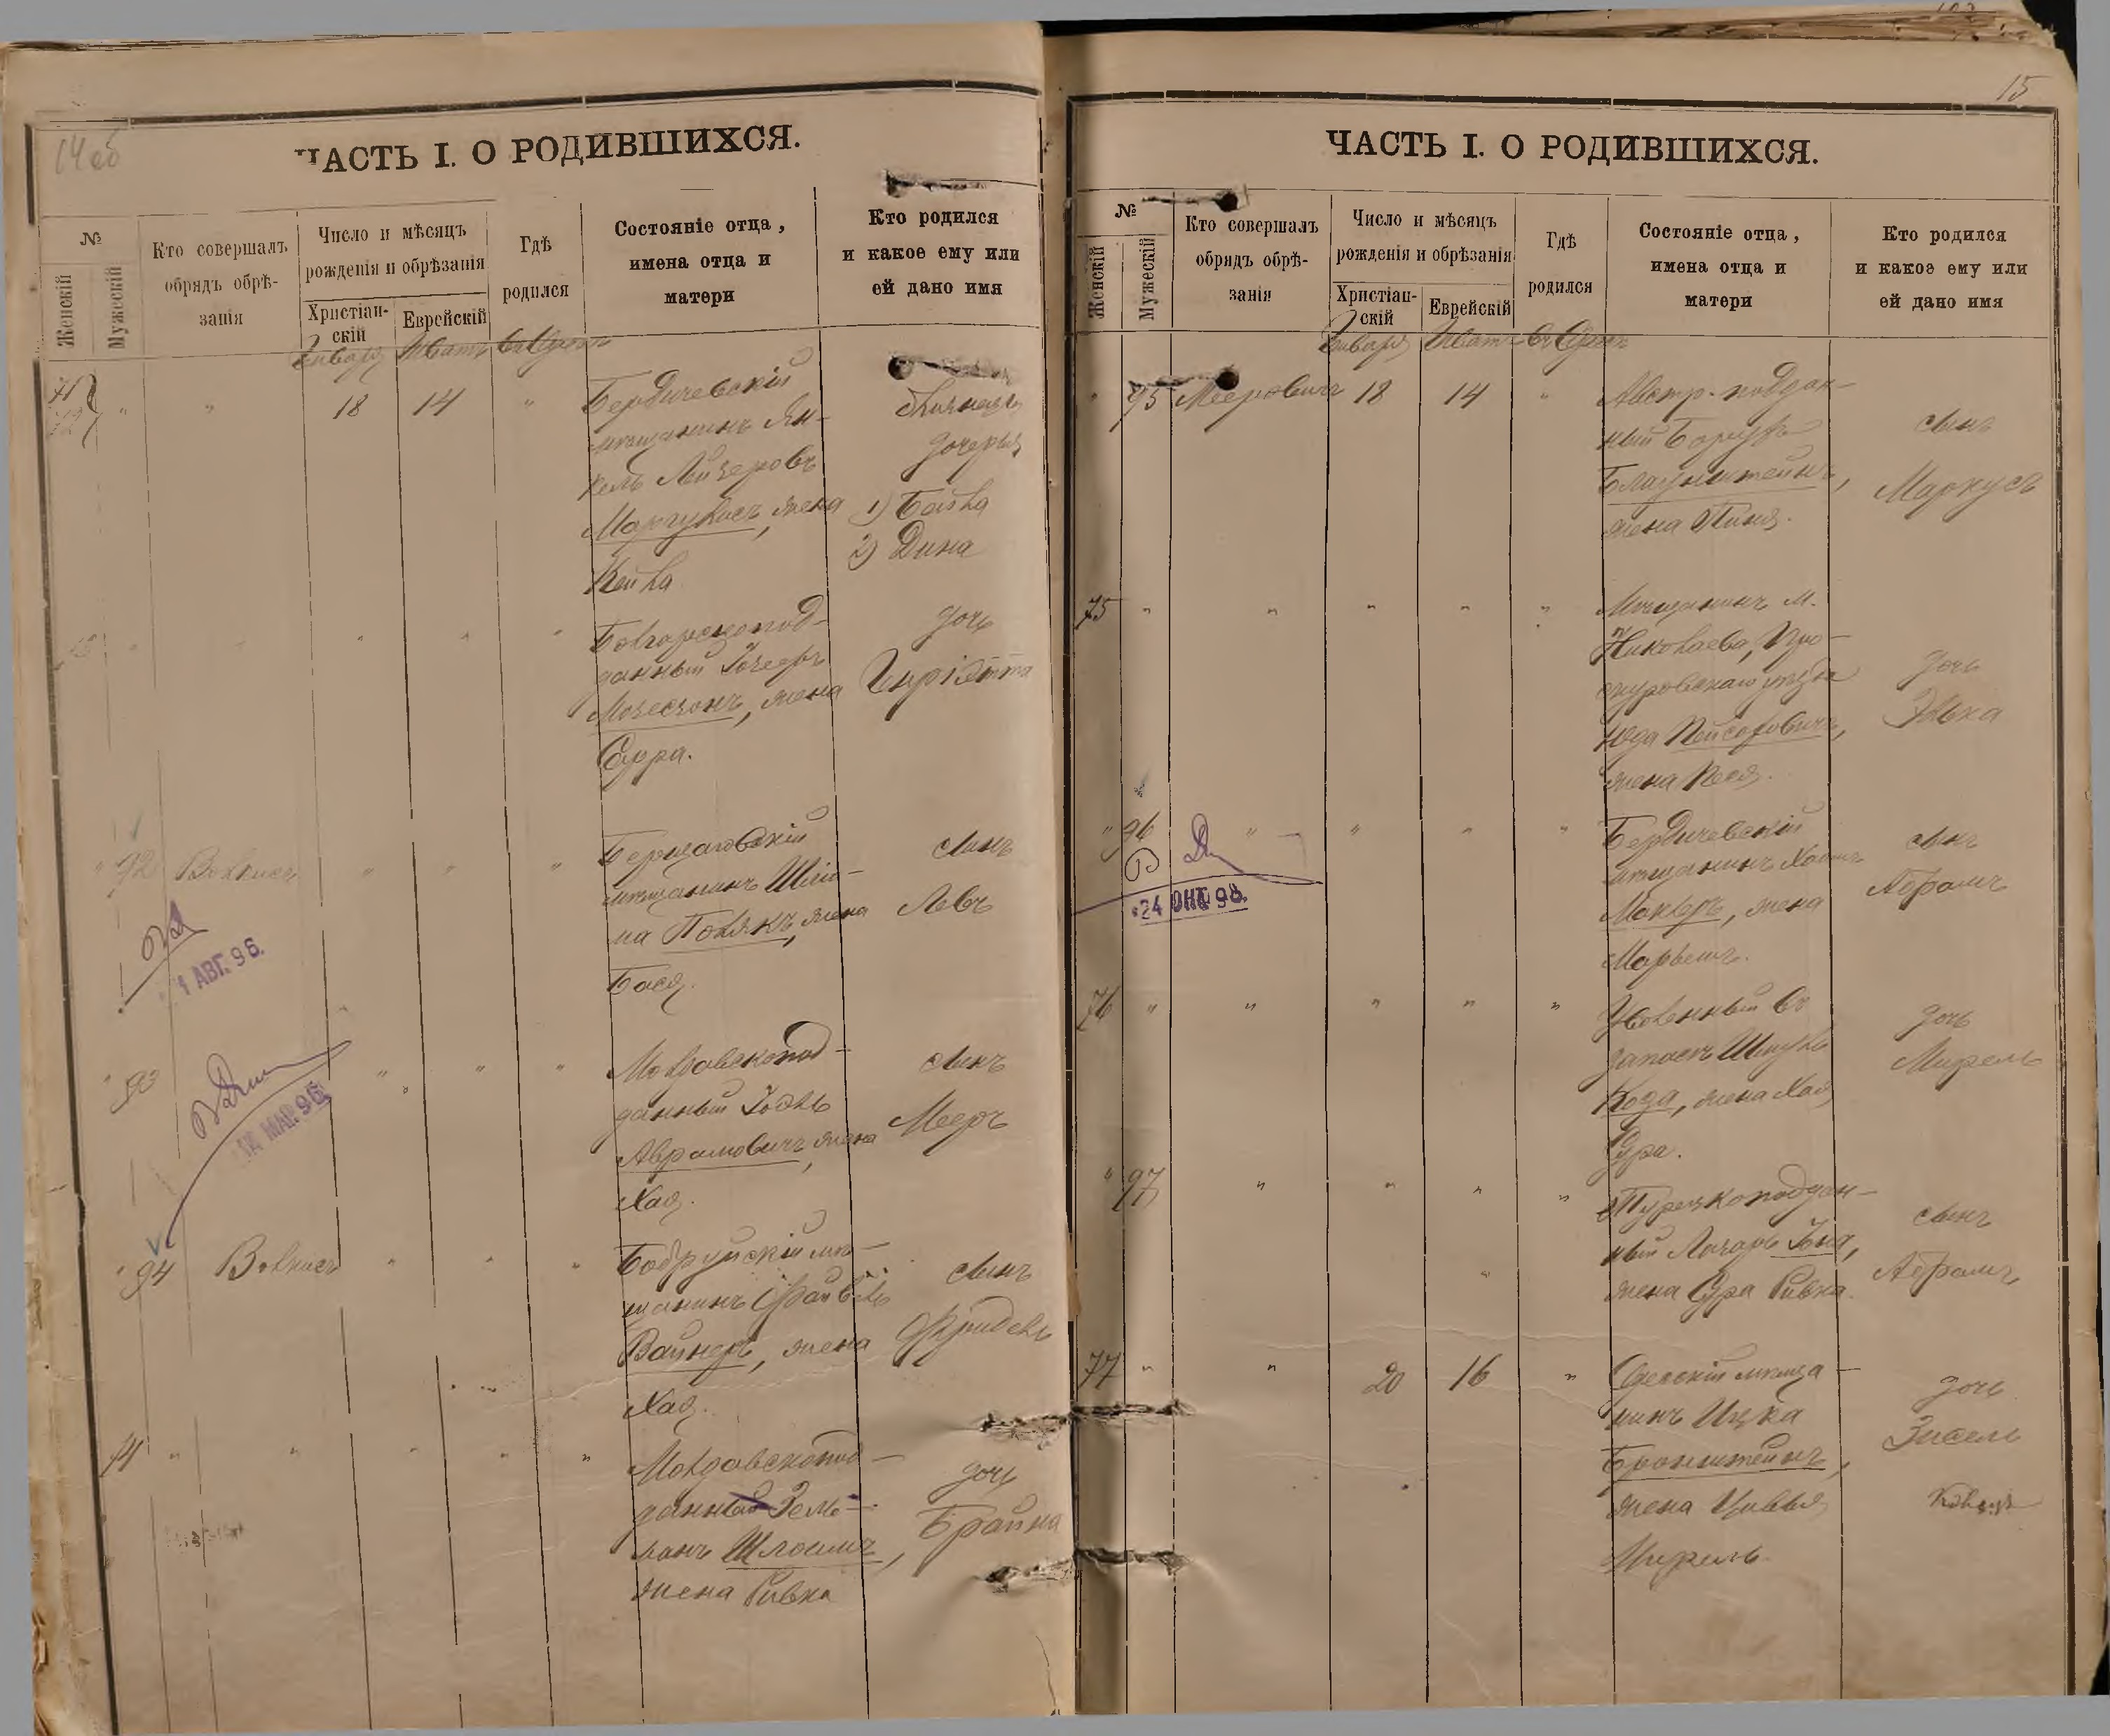 14 об
ЧАСТЬ I. О РОДИВШИХСЯ.
№
Женскій
Мужескій
Кто совершалъ
обрядъ обрѣ-
занія
Число и мѣсяцъ
рожденія и обрѣзанія
Христіан-
скій
Еврейскій
Гдѣ
родился
Состояніе отца,
имена отца и
матери
Кто родился
и какое ему или
ей дано имя
Января Шватъ
18 14 "
Бердичевскій
мѣщанинъ Ян-
кель Лейзеровъ
жена
Кейла
дочери
1) Бейла
2) Дина
данный
Мозесонъ, жена
Сурра.
дочь
Генріэтта
" 92
мѣщанинъ Шлио-
ма Полякъ, жена
Бася.
сынъ
Левъ
1 АВГ. 96.
" 93
Молдавскопод-
данный Іоэль
Аврамовичъ, жена
Хая.
сынъ
Мееръ
МАР. 96
" 94
Бобруйскій мѣ-
щанинъ Файвель
Вайнеръ, жена
Хая.
сынъ
Фридель
Молдавскопод-
данный Зель-
манъ Шлоимъ,
жена Ривка
дочь
Брайна
15
ЧАСТЬ I. О РОДИВШИХСЯ.
№
Женскій
Мужескій
Кто совершалъ
обрядъ обрѣ-
занія
Число и мѣсяцъ
рожденія и обрѣзанія
Христіан-
скій
Еврейскій
Гдѣ
родился
Состояніе отца,
имена отца и
матери
Кто родился
и какое ему или
ей дано имя
Января Шватъ
" 95 Мееровичъ 18 14 "
Австр.-поддан-
ный Борухъ
Блауштейнъ,
жена
сынъ
Маркусъ
75 " " " " "
Мѣщанинъ м.
Николаева, Про-
скуровскаго уѣзда
Юда Пейсаховичъ,
жена Песя.
дочь
Элька
" 96 " " " "
Бердичевскій
мѣщанинъ Хаимъ
жена
Марьемъ.
сынъ
Абрамъ
24 ОКТ 98.
76 " " " " "
Уволенный въ
запасъ Шмуль
Коза, жена Хая
Сура.
дочь
Мирель
" 97 " " " "
Турецкоподдан-
ный Лазарь Іона,
жена Сура Ривка.
сынъ
Абрамъ
77 " " 20 16 "
Одесскій мѣща-
нинъ Ицка
Бронштейнъ,
жена Цивья
Мирель.
дочь
Зисель